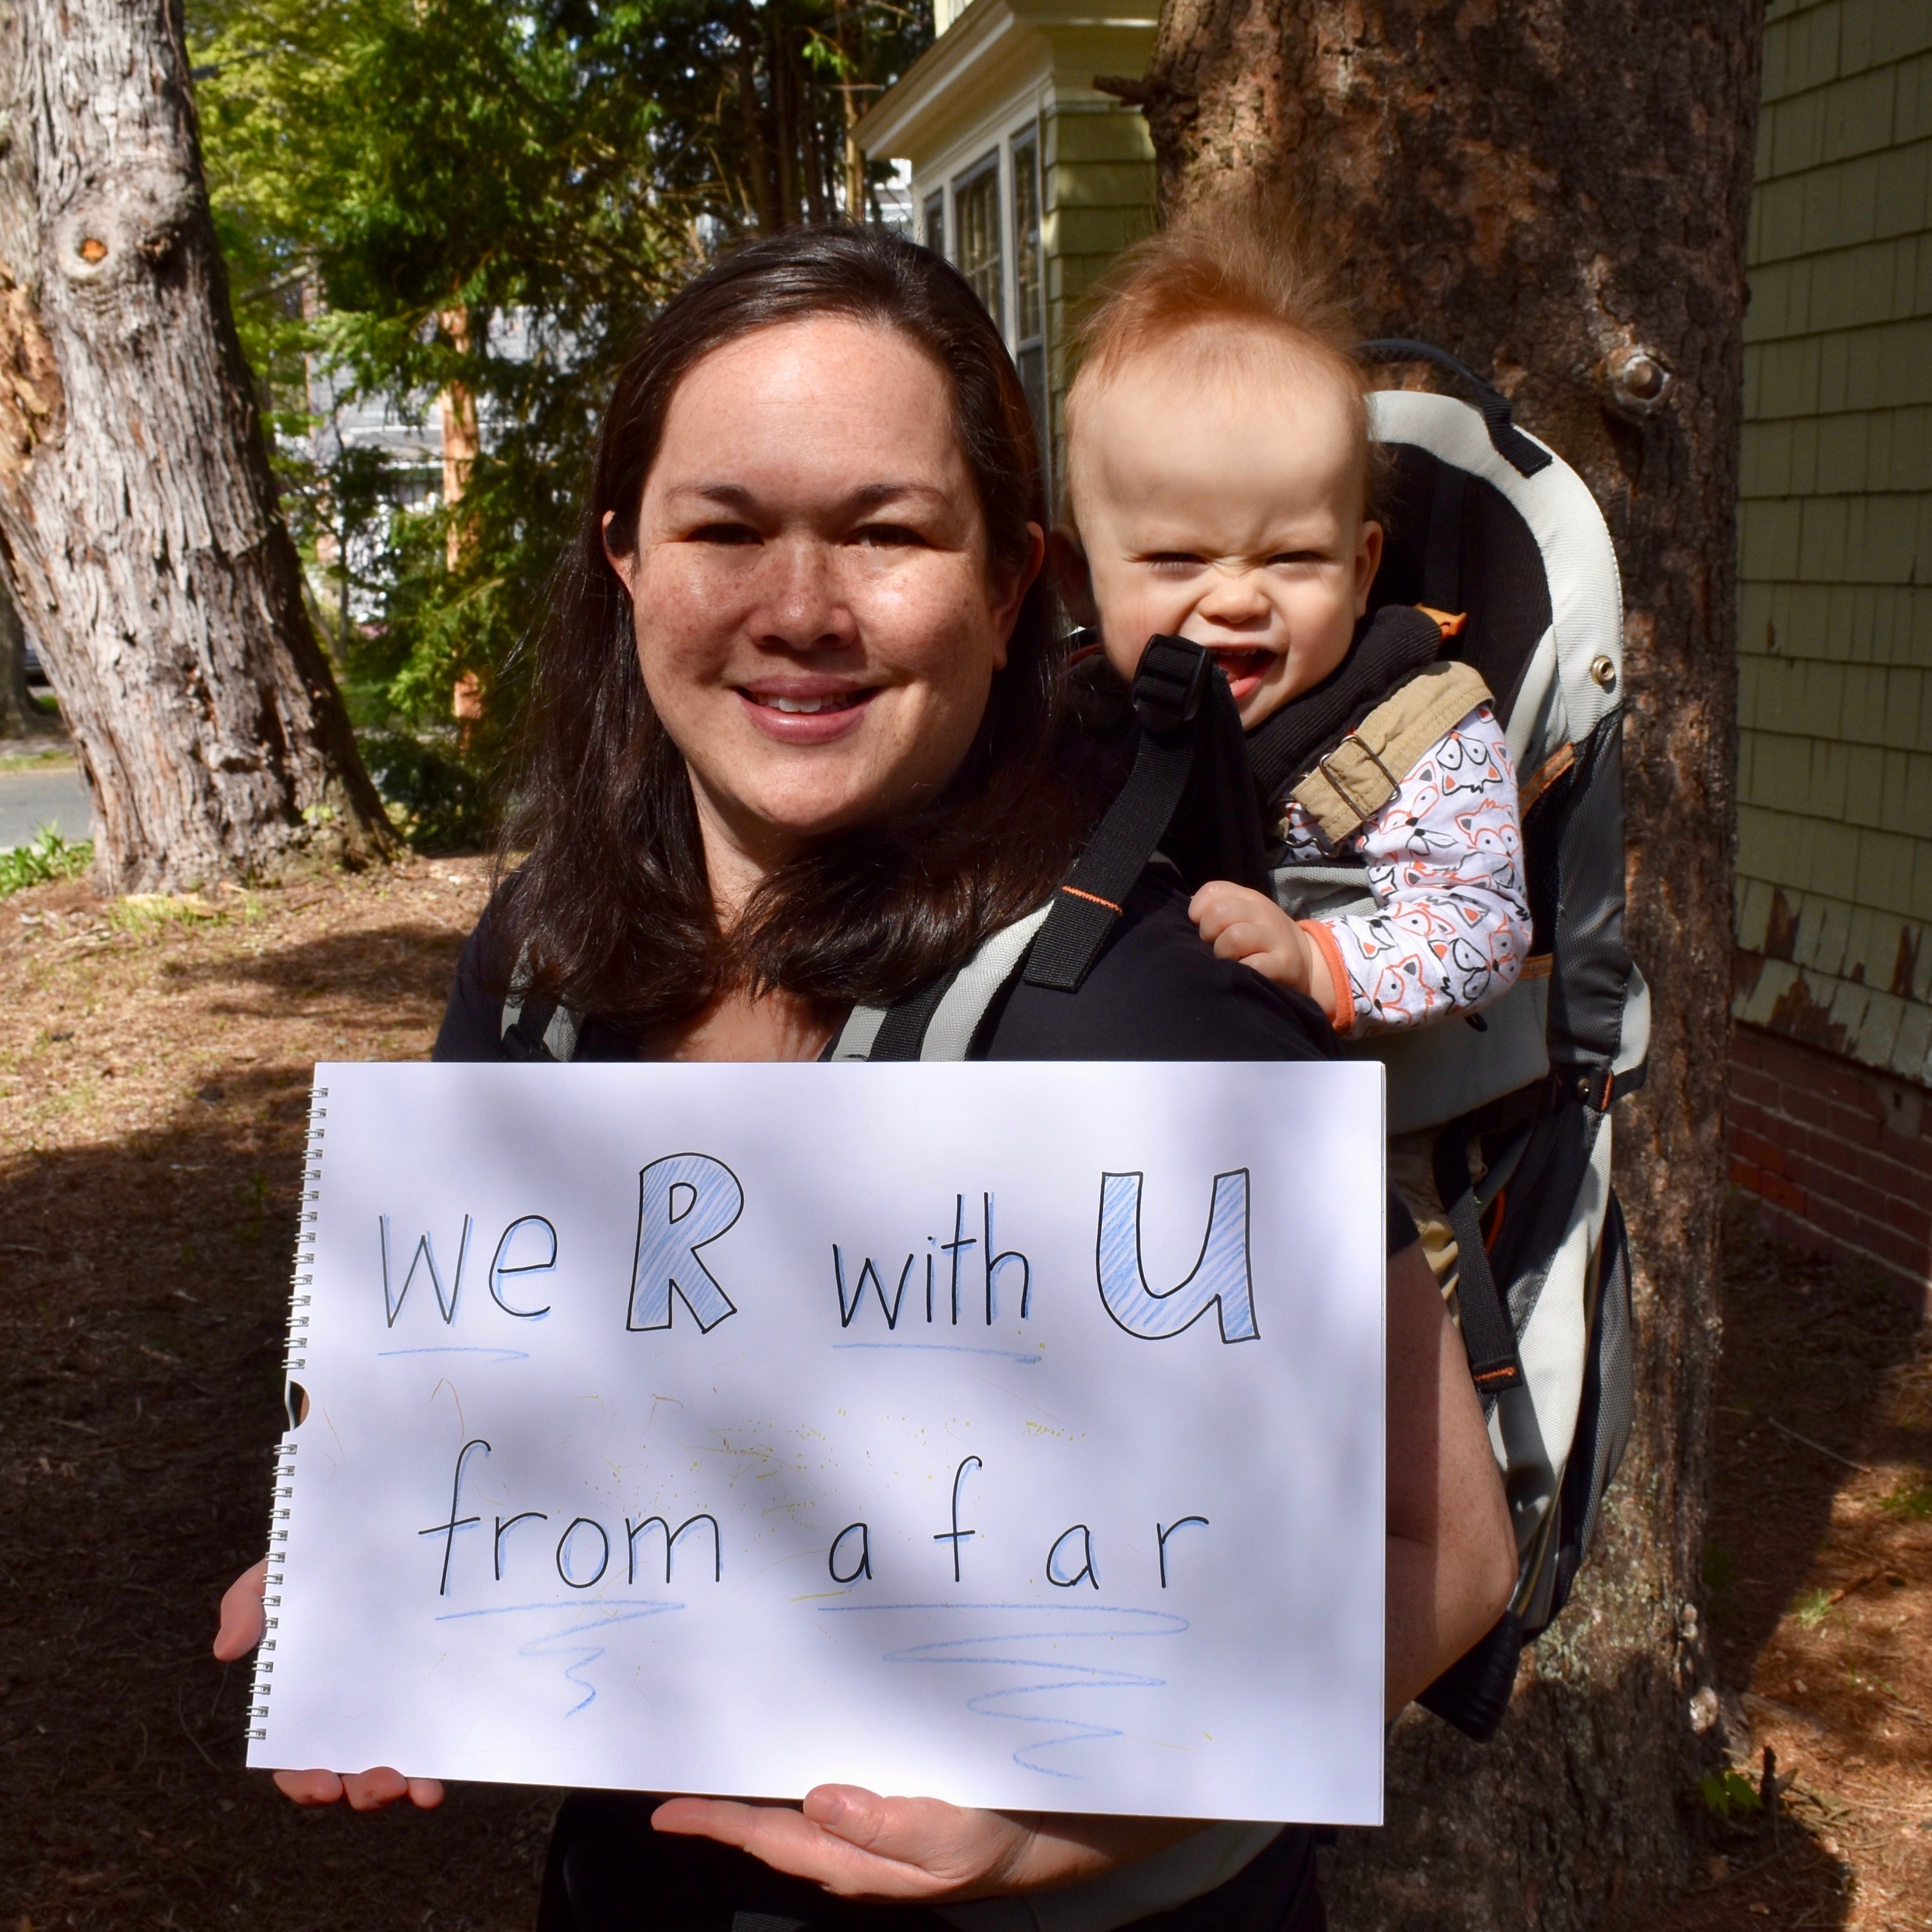 we R with U
from afar